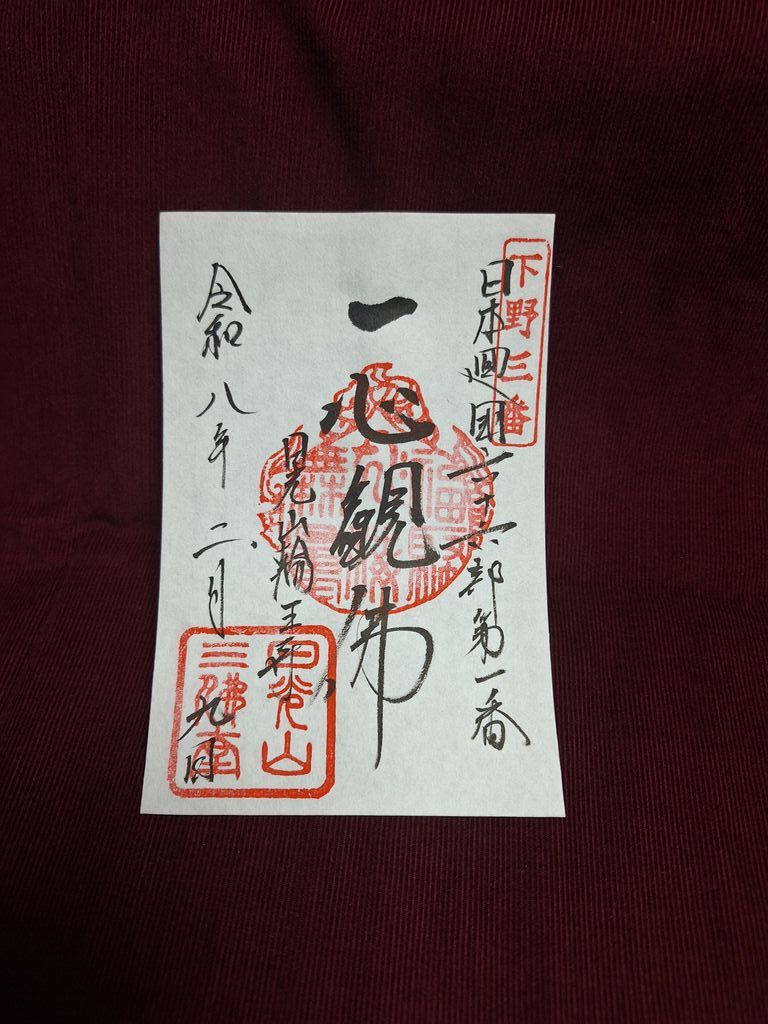 下野三番
日本廻国六十六部第一番
一心観佛
日光山輪王寺
令和八年二月九日
日光山
三佛堂